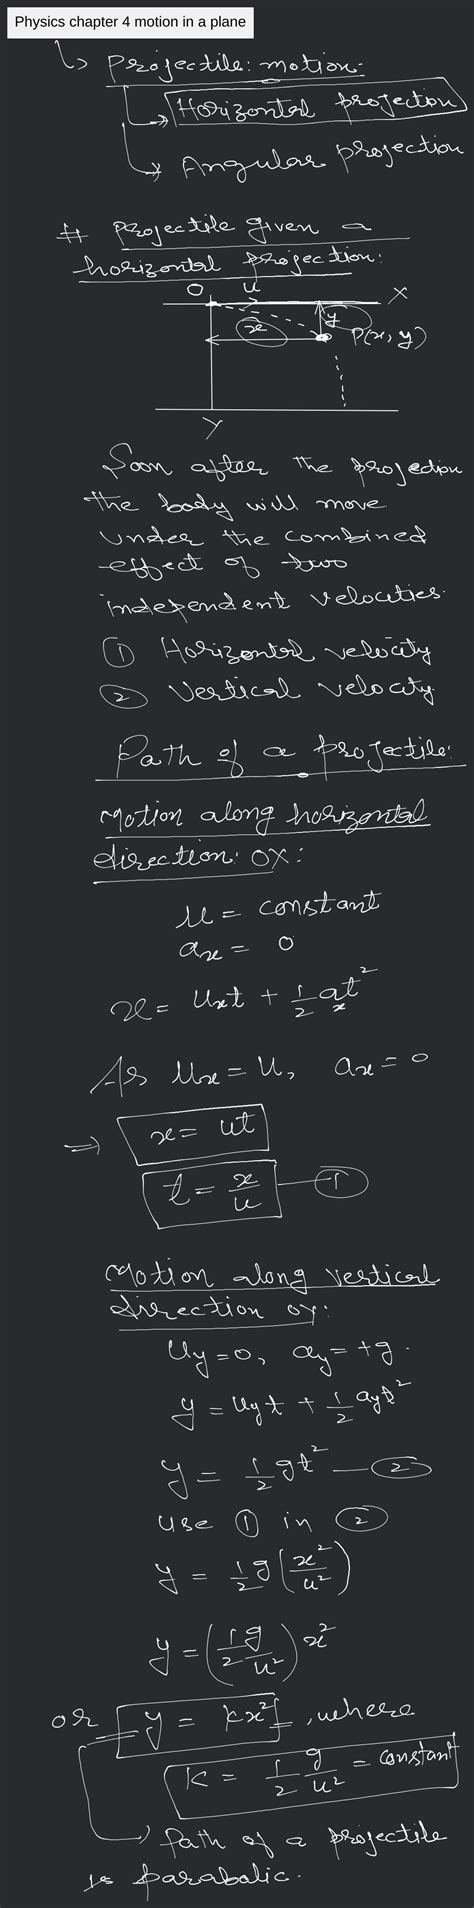 Physics chapter 4 motion in a plane
↳ Projectile: motion:-
→ Horizontal projection
→ Angular projection
# Projectile given a
horizontal projection:
O u X
x y P(x, y)
Y
Soon after the projection
the body will move
under the combined
effect of two
independent velocities.
① Horizontal velocity
② Vertical velocity.
Path of a projectile:
Motion along horizontal
direction: OX:
u = constant
ax = 0
x = uxt + 1/2 axt²
As ux = u, ax = 0
⇒ x = ut
t = x/u — ①
Motion along vertical
direction OY:
uy = 0, ay = +g.
y = uyt + 1/2 ayt²
y = 1/2 gt² — ②
use ① in ②
y = 1/2 g (x²/u²)
y = (1/2 g/u²) x²
or y = kx², where
K = 1/2 g/u² = constant
→ Path of a projectile
is parabolic.